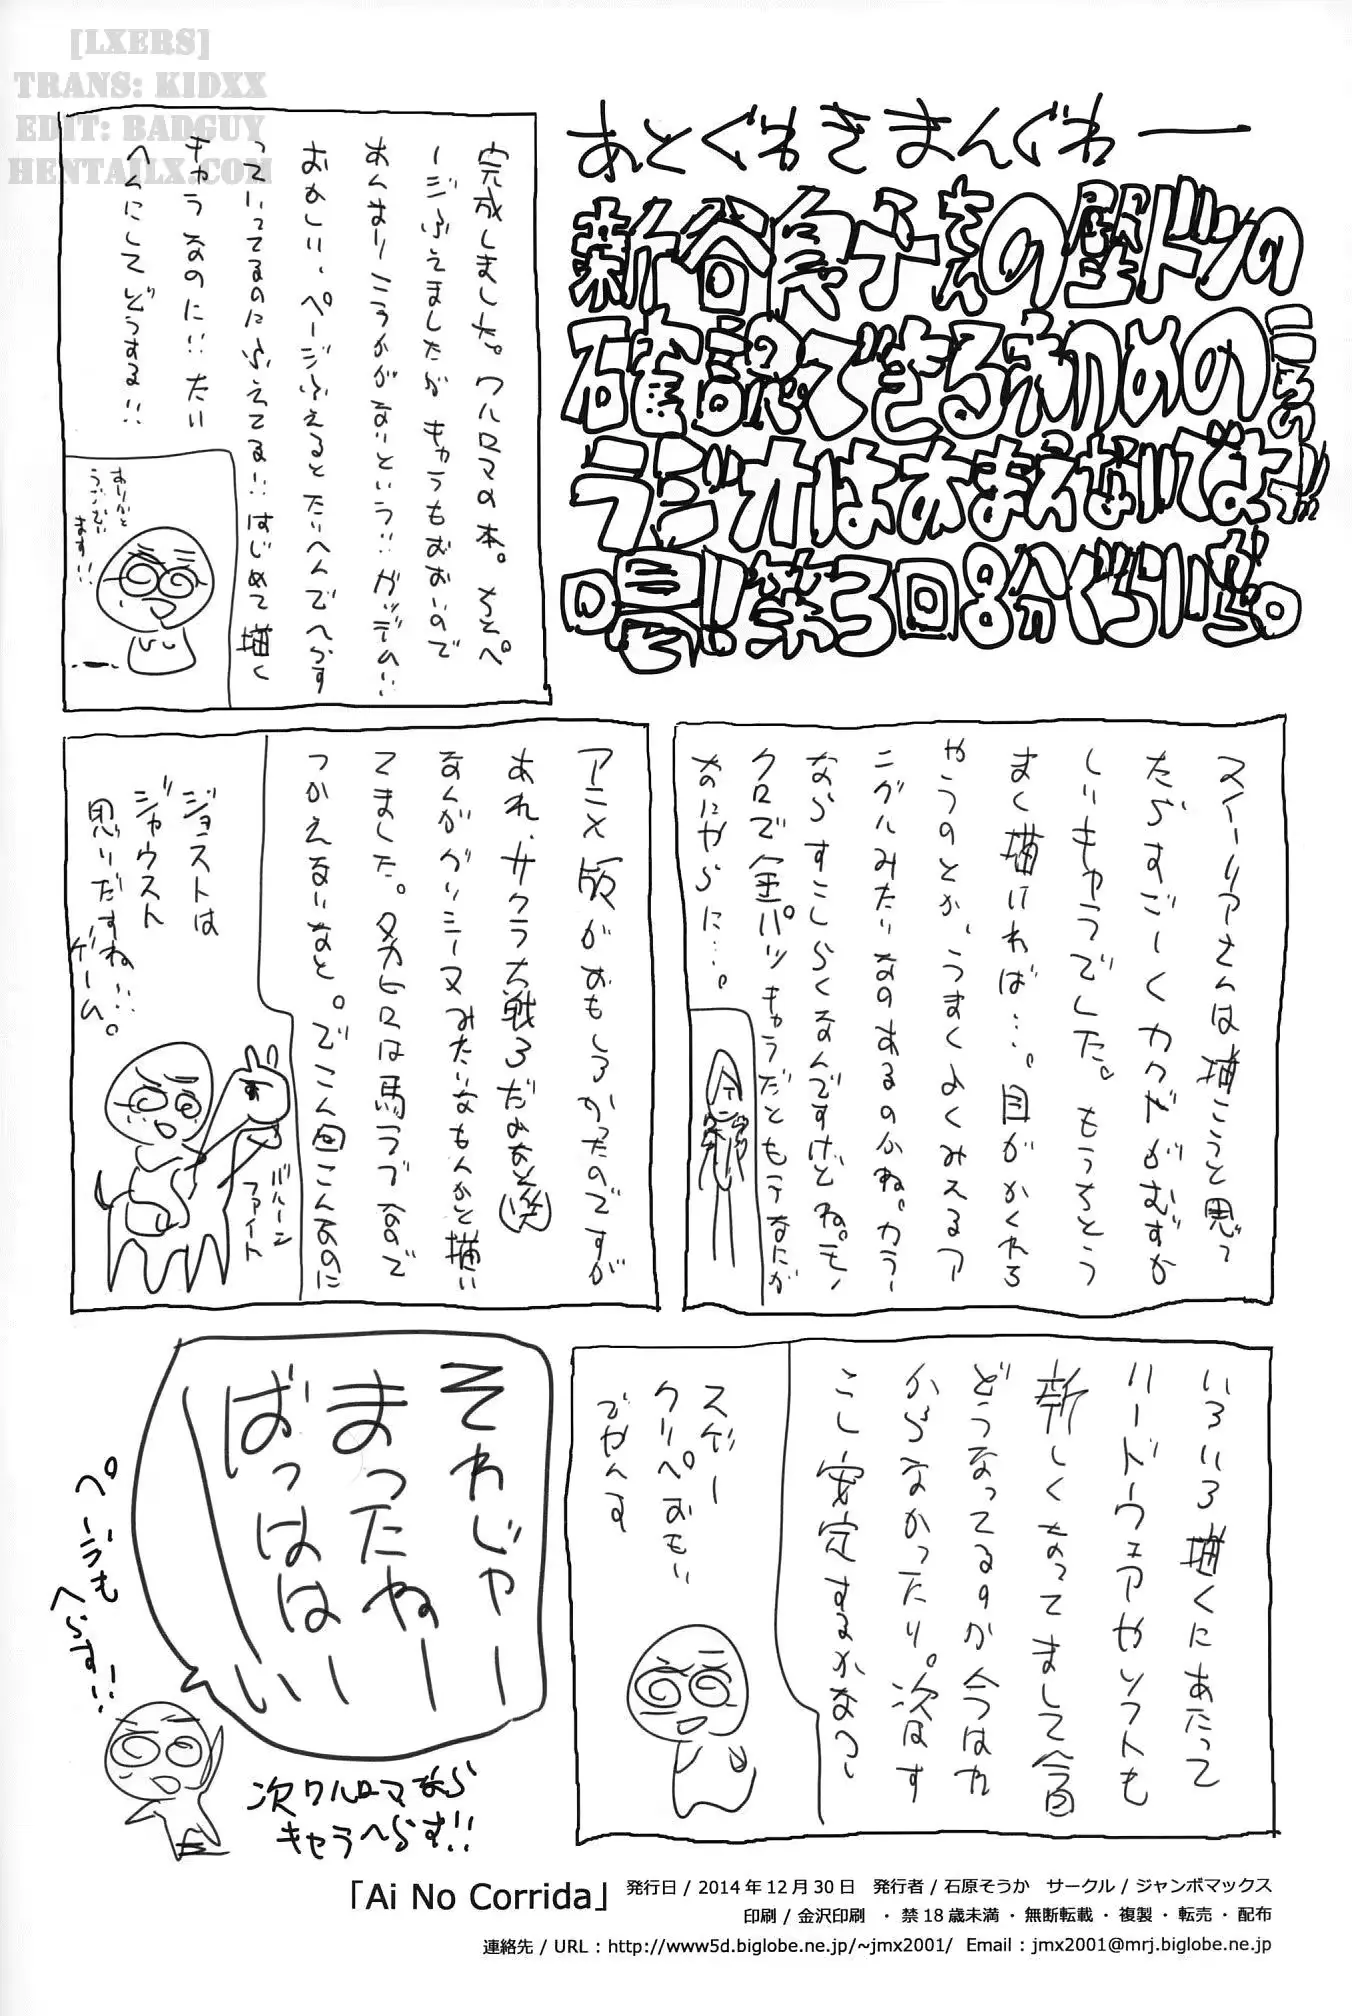 [LXERS]
TRANS: KIDXX
EDIT: BADGUY
HENTAILX.COM
あとぐわきまんぐわー
新谷良子さんの壁ドンの
確認できる初めての
ラジオはおまえないでよ
第3回8分ぐらいから
完成しました。ワルロマの本。ちとペ
ージふえましたが キャラもおおいので
あんまりこうかがないという!! ガッデム!!
おかしい、ページふえるとたいへんでへらす
っていってるのにふえてる!! はじめて描く
キャラなのに!! たい
へんにしてどうする!!
ありがと
うござい
ます!!
スイーリアさんは描こうと思って
たらすごーくカクのがむずか
しいキャラでした。もうちとう
まく描ければ…。目がかくれる
やつのとか、うまくよくみえるア
ングルみたいなのあるのかね。カラー
ならすこしらくなんですけどね。モノ
クロで金パツキャラだともうなにが
なにやらに…。
アニメ版がおもしろかったのですが
あれ、サクラ大戦3だよなと(笑)
なんかグリシーヌみたいなもんかと描い
てました。タカヒロは馬ラブなので
つかえないなと。でこん回こんなのに
ジョストは
ジャウスト
思いだすね…
ゲーム。
バルーン
ファイト
いろいろ描くにあたって
ハードウェアやソフトも
新しくなってまして今回
どうなってるのか今はわ
からなかったり。次はす
こし安定するかなっ
スゲー
クリペおもい
でやんす
それじゃー
まったねー
ばっははーい
ページも
へらす!!
次ワルロマなら
キャラへらす!!
「Ai No Corrida」 発行日 / 2014年12月30日 発行者 / 石原そうか サークル / ジャンボマックス
印刷 / 金沢印刷 ・禁18歳未満・無断転載・複製・転売・配布
連絡先 / URL : http://www5d.biglobe.ne.jp/~jmx2001/ Email : jmx2001@mrj.biglobe.ne.jp